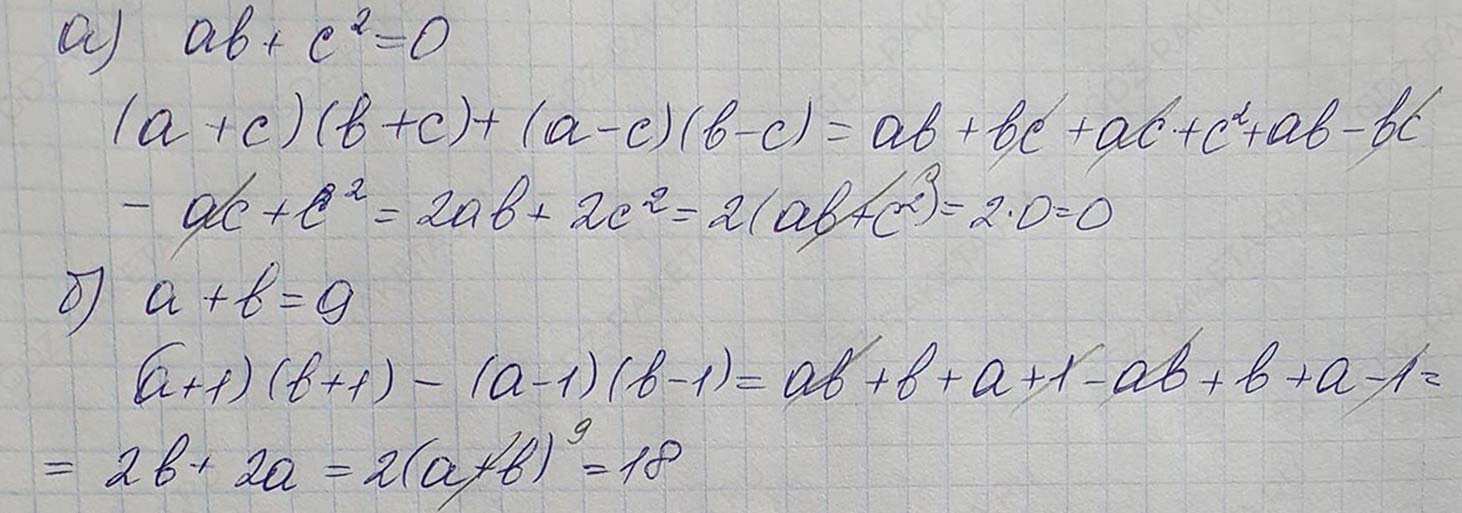 а) ab + c² = 0
(a + c)(b + c) + (a - c)(b - c) = ab + bc + ac + c² + ab - bc
- ac + c² = 2ab + 2c² = 2(ab + c²) = 2·0 = 0
б) a + b = 9
(a+1)(b+1) - (a-1)(b-1) = ab + b + a + 1 - ab + b + a - 1 =
= 2b + 2a = 2(a+b)⁹ = 18